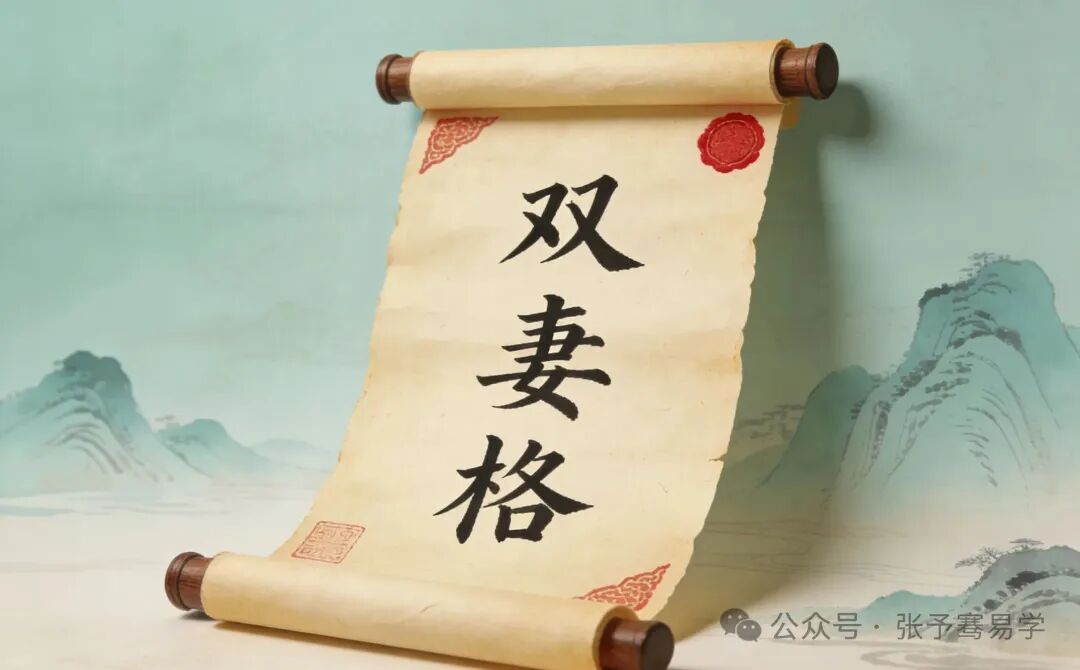 双
妻
格
公众号·张予骞易学